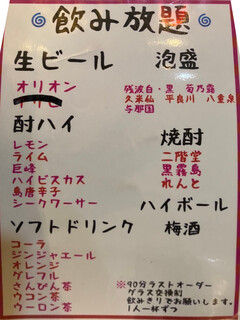 飲み放題
生ビール
オリオン
酎ハイ
レモン
ライム
巨峰
ハイビスカス
島唐辛子
シークワーサー
ソフトドリンク
コーラ
ジンジャエール
オレンジ
グレフル
さんぴん茶
ウコン茶
ウーロン茶
泡盛
残波白・黒 菊乃露
久米仙 平良川 八重泉
与那国
焼酎
二階堂
黒霧島
れんと
ハイボール
梅酒
※90分ラストオーダー
グラス交換制
飲みきりでお願いします。
1人一杯ずつ